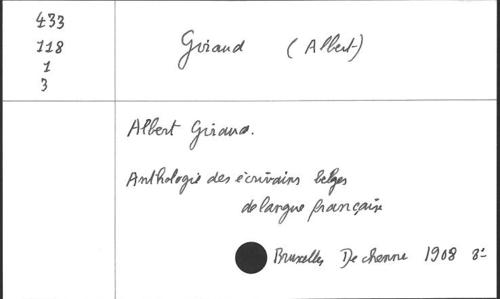 433
118
1
3
Giraud (Albert)
Albert Giraud.
Anthologie des écrivains belges
de langue française
Bruxelles, Dechenne 1908 8°